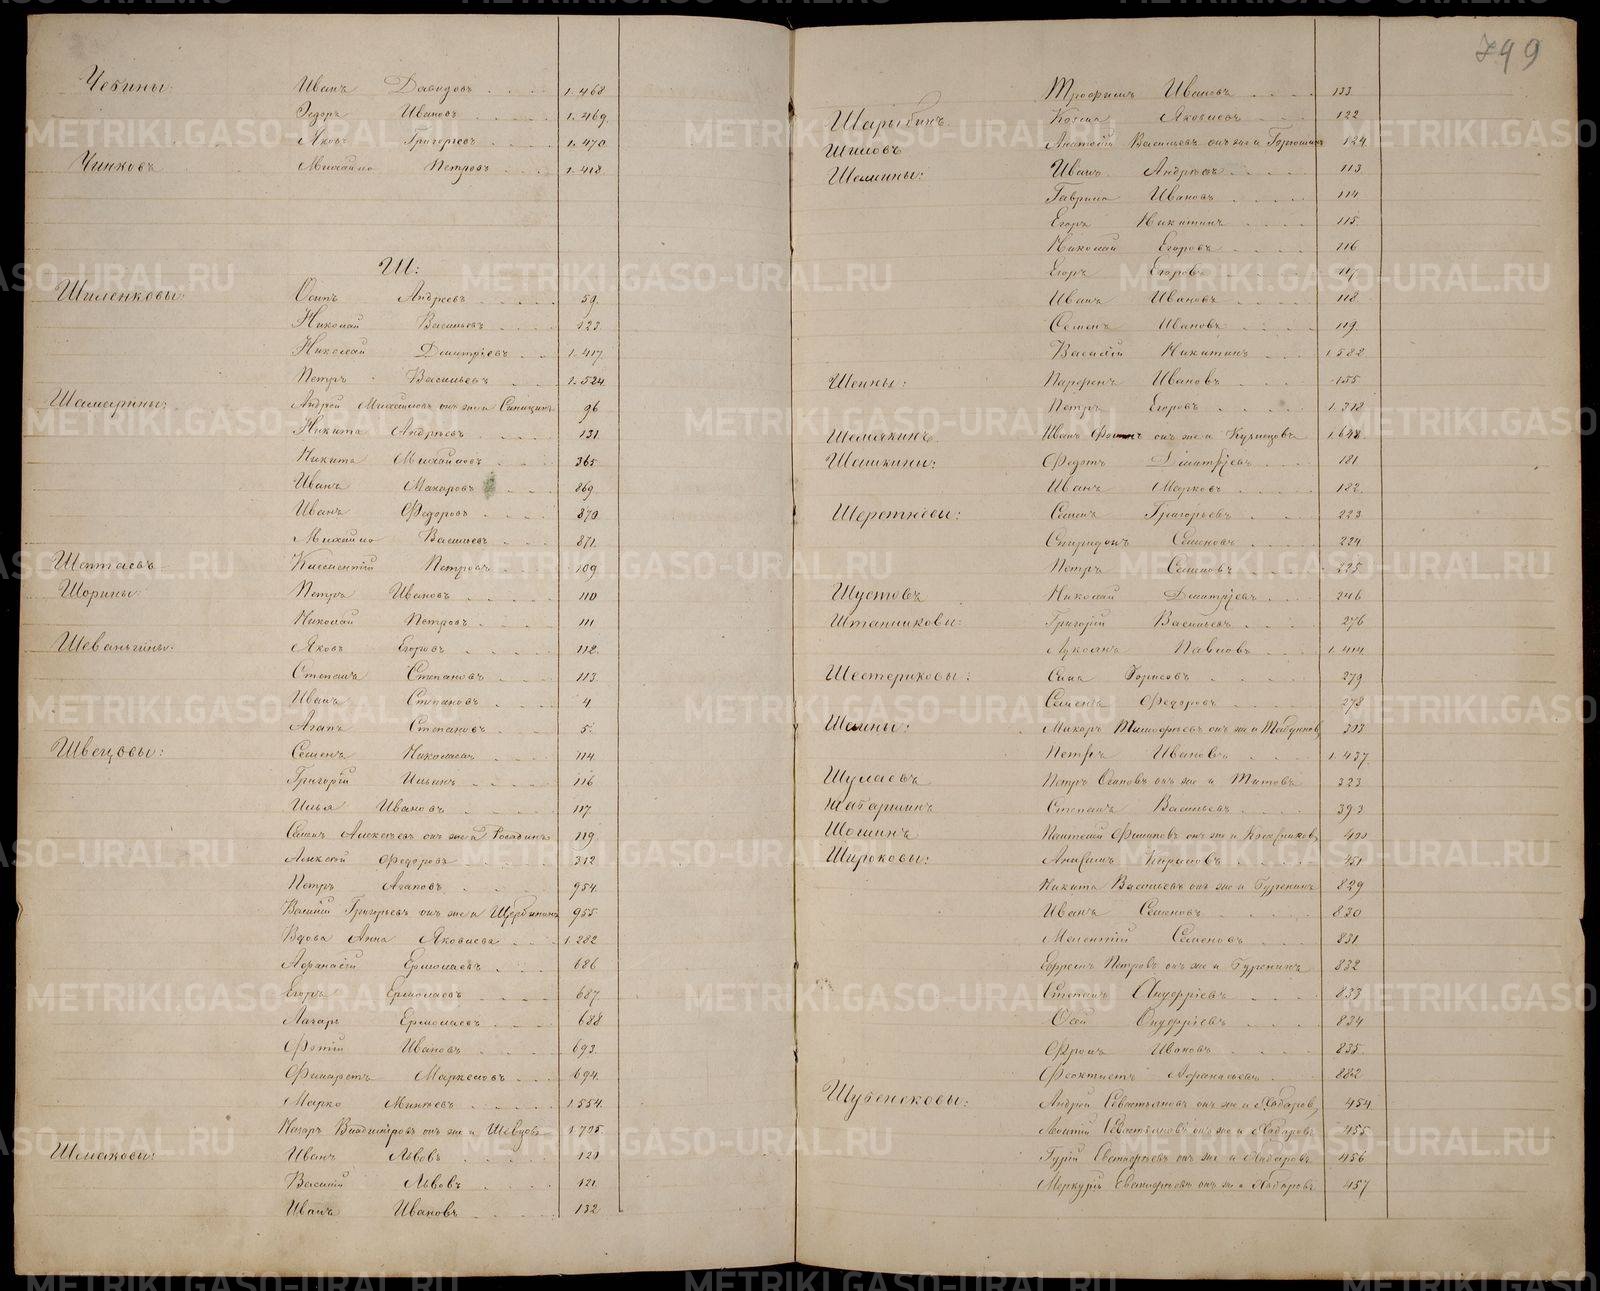 799
Чебины: Иванъ Давидовъ 1.468
Ѳедоръ Ивановъ 1.469
Яковъ Григорьевъ 1.470
Чинковъ Михайло Петровъ 1.418
Ш:
Шиленковы: Осипъ Андреевъ 59.
Николай Васильевъ 123
Николай Дмитріевъ 1.417
Петръ Васильевъ 1.524
Шамарины: Андрей Михайловъ онъ же и Синицынъ 96
Никита Андреевъ 131
Никита Михайловъ 365
Иванъ Макаровъ 869
Иванъ Федоровъ 870
Михайло Васильевъ 871
Шептаевъ Климентій Петровъ 109
Шорины: Петръ Ивановъ 110
Николай Петровъ 111
Шевалгины: Яковъ Егоровъ 112
Степанъ Степановъ 113
Иванъ Степановъ 4
Агапъ Степановъ 5.
Швецовы: Семенъ Николаевъ 114
Григорій Ильинъ 116
Илья Ивановъ 117
Семенъ Алексѣевъ онъ же и 119
Алексѣй Федоровъ 312
Петръ Агаповъ 954
Василій Григорьевъ онъ же и Щербининъ 955
Вдова Анна Яковлева 1.282
Афанасій Ермолаевъ 686
Егоръ Ермолаевъ 687
Лазарь Ермолаевъ 688
Фотій Ивановъ 693
Филаретъ Маркеловъ 694
Марко 1.554
Назаръ Владиміровъ онъ же и Швецовъ 1.705
Шмаковы: Иванъ Львовъ 120
Василій Львовъ 121
Иванъ Ивановъ 132
Трофимъ Ивановъ 133
Шарыбинъ Козма Яковлевъ 122
Шиловъ Анатолій Васильевъ онъ же и 124
Шамины: Иванъ Андреевъ 113
Гаврила Ивановъ 114
Егоръ Никитинъ 115
Николай Егоровъ 116
Егоръ Егоровъ 117
Иванъ Ивановъ 118
Семенъ Ивановъ 119
Василій Никитинъ 1.582
Шеины: Парфенъ Ивановъ 155
Петръ Егоровъ 1.318
Шемякинъ Иванъ онъ же и Кузнецовъ 1.648
Шишкины: Федотъ Дмитріевъ 181
Иванъ Марковъ 182
Шеротневы: Семенъ Григорьевъ 223
Спиридонъ Семеновъ 224
Петръ Семеновъ 225
Шустовъ Николай Дмитріевъ 246
Штанниковы: Григорій Васильевъ 276
Лукоянъ Павловъ 1.414
Шестериковы: Сила Борисовъ 279
Семенъ Федоровъ 278
Шеины: Тимофѣевъ онъ же и 303
Петръ Ивановъ 1.437
Шулаевъ Петръ Осиповъ онъ же и Титовъ 323
Шабаршинъ Степанъ Васильевъ 393
Шошинъ Филиповъ онъ же и 400
Широковы: Анисимъ Кириловъ 451
Никита Васильевъ онъ же и Гуренинъ 829
Иванъ Семеновъ 830
Мелентій Семеновъ 831
Ефремъ Петровъ онъ же и Гуренинъ 832
Степанъ Ануфріевъ 833
Осій Онуфріевъ 834
Фролъ Ивановъ 835
Феоктистъ Афанасьевъ 882
Шубенковы: Андрей Севастьяновъ онъ же и Хабаровъ 454
Леонтій Севастьяновъ онъ же и Хабаровъ 455
Гурій Евстифѣевъ онъ же и Хабаровъ 456
Меркурій Евстифѣевъ онъ же и Хабаровъ 457
METRIKI.GASO-URAL.RU